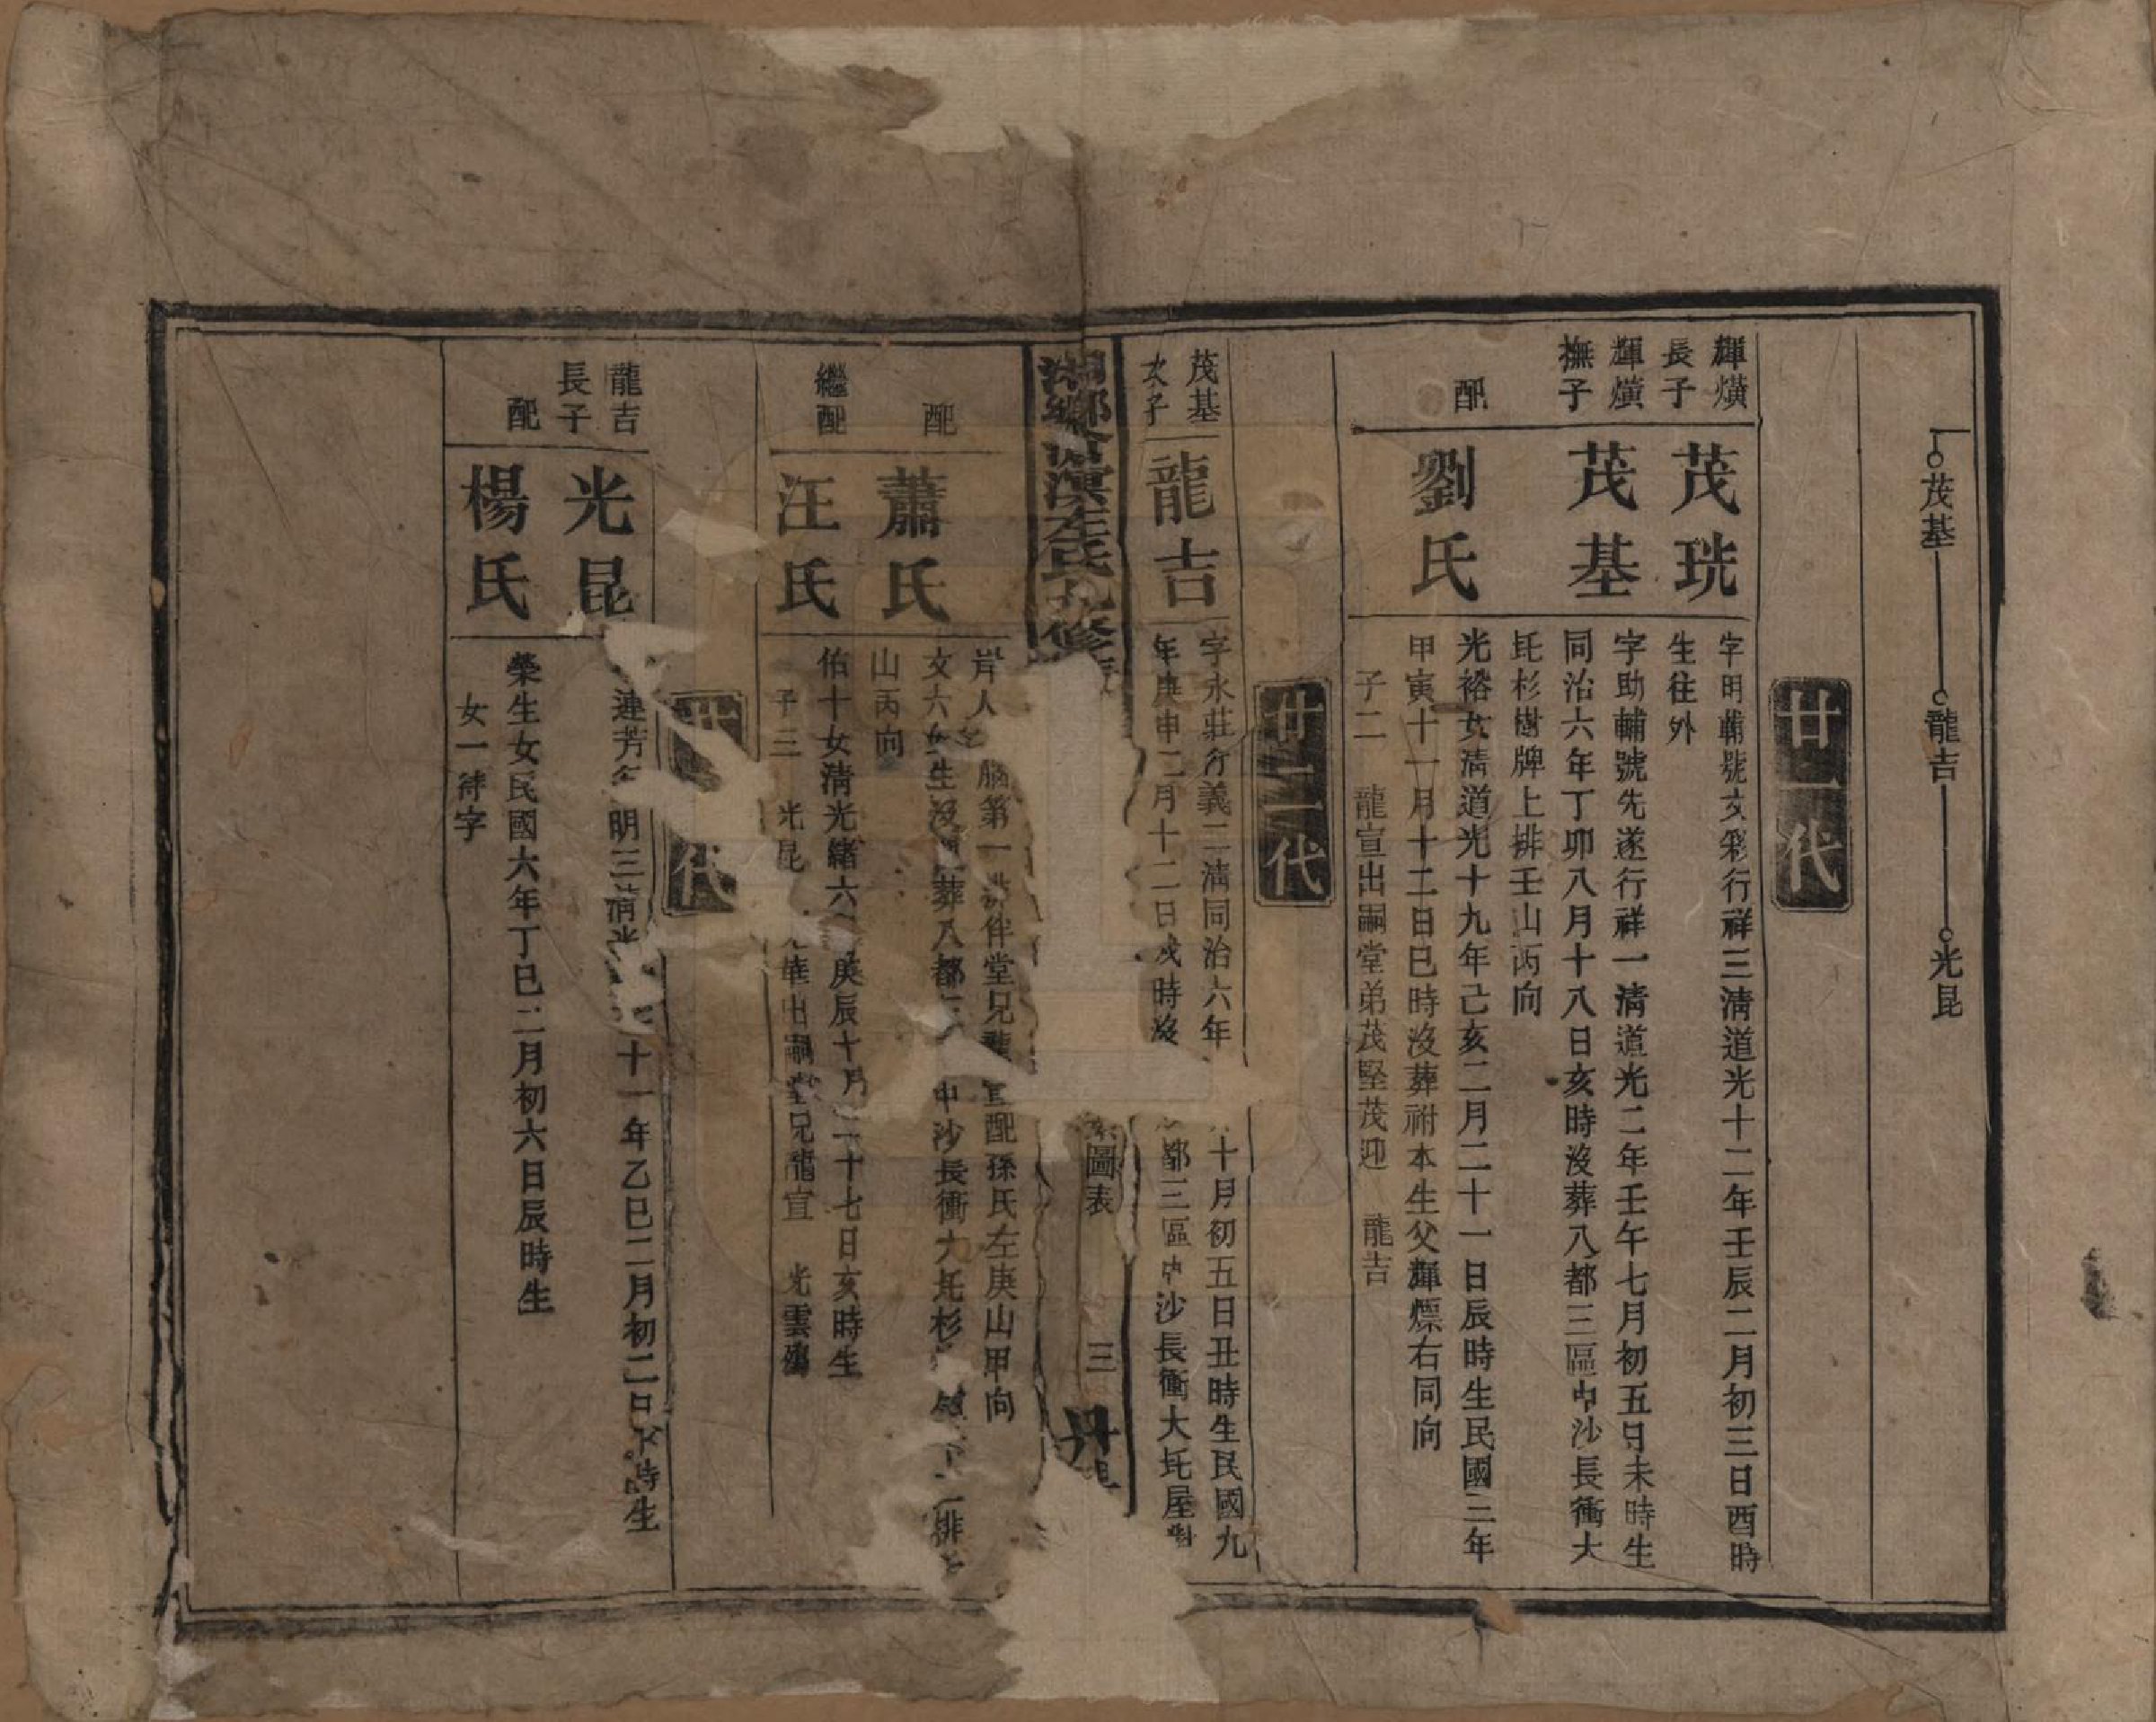 茂基 龍吉 光昆
廿一代
輝熿長子 茂珖 字明輔號文彩行祥三清道光十二年壬辰二月初三日酉時
生往外
輝熿撫子 茂基 字助輔號先遂行祥一清道光二年壬午七月初五日未時生
同治六年丁卯八月十八日亥時沒葬八都三區中沙長衝大
圫杉樹牌上排壬山丙向
配 劉氏 光裕女清道光十九年己亥二月二十一日辰時生民國三年
甲寅十一月十二日巳時沒葬祔本生父輝熛右同向
子二 龍宣出嗣堂弟茂堅茂迎 龍吉
廿二代
茂基次子 龍吉 字永莊行義二清同治六年 十月初五日丑時生民國九
年庚申二月十二日戌時沒 都三區中沙長衝大圫屋對
湘鄉 左氏 修
圖表 三
岸人 腦第一排伴堂兄龍宣配孫氏左庚山甲向
配 蕭氏 文六女生沒 葬八都 中沙長衝大圫杉 排
山丙向
繼配 汪氏 佑十女清光緒六年庚辰十月二十七日亥時生
子三 光昆 光華出嗣堂兄龍宣 光雲殤
代
龍吉長子 光昆 連芳 明三清光 十一年乙巳二月初二日 時生
配 楊氏 榮生女民國六年丁巳二月初六日辰時生
女一待字